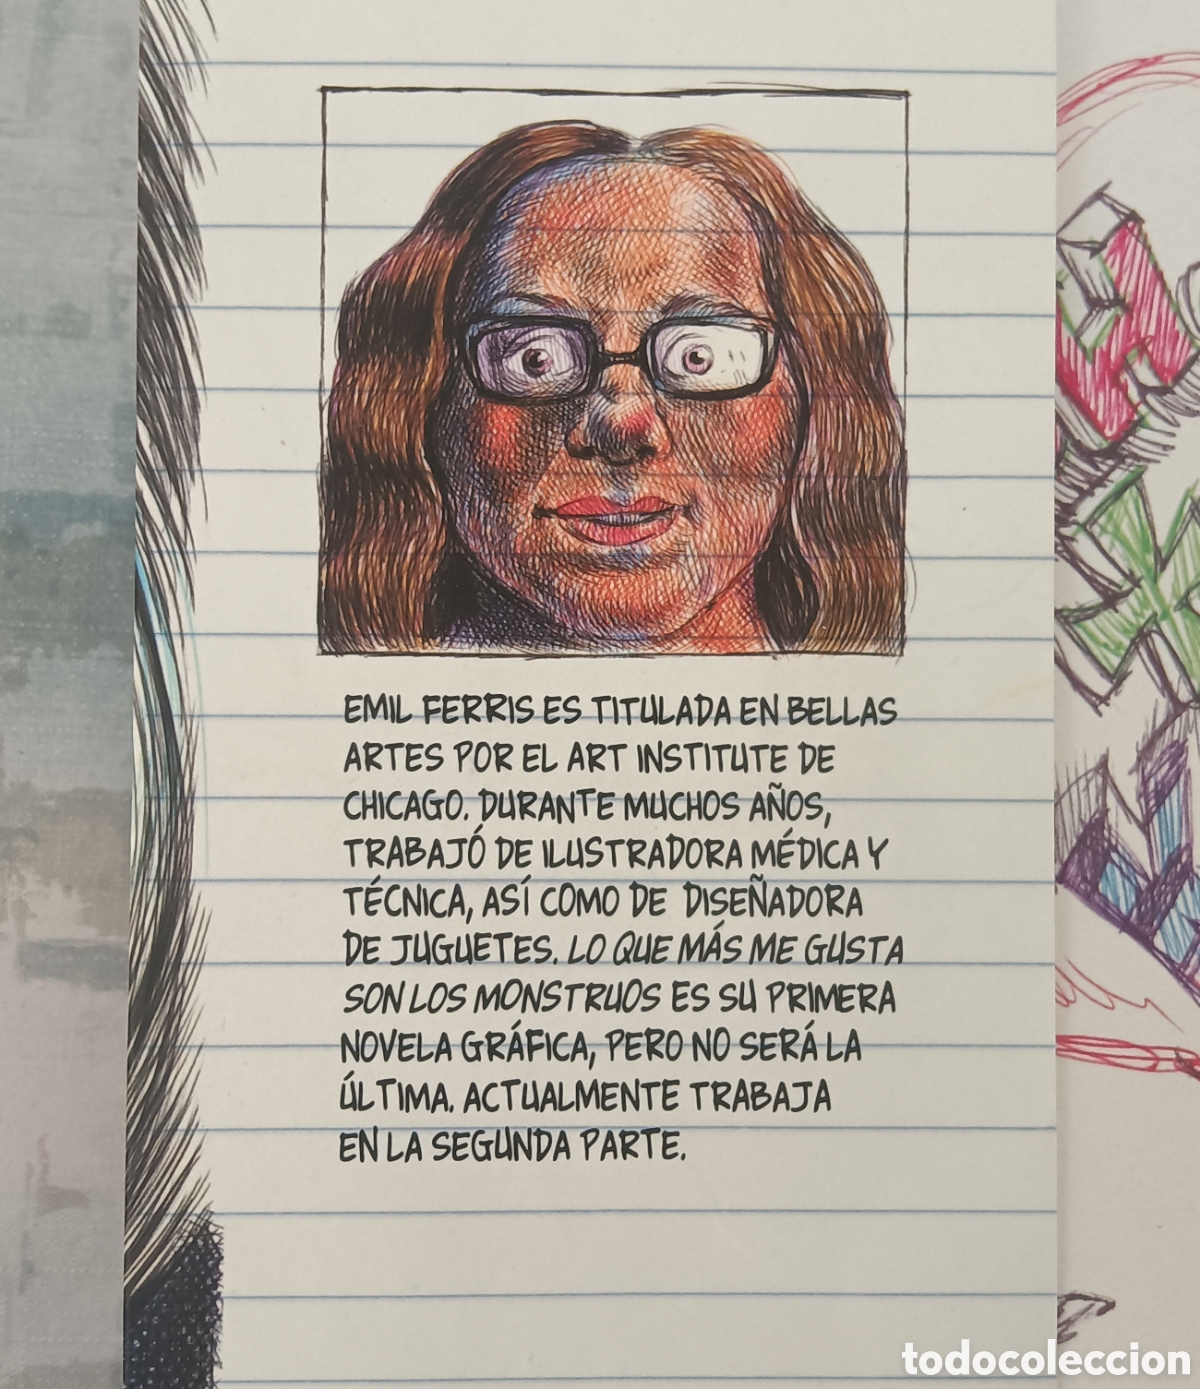 EMIL FERRIS ES TITULADA EN BELLAS
ARTES POR EL ART INSTITUTE DE
CHICAGO. DURANTE MUCHOS AÑOS,
TRABAJÓ DE ILUSTRADORA MÉDICA Y
TÉCNICA, ASÍ COMO DE DISEÑADORA
DE JUGUETES. LO QUE MÁS ME GUSTA
SON LOS MONSTRUOS ES SU PRIMERA
NOVELA GRÁFICA, PERO NO SERÁ LA
ÚLTIMA. ACTUALMENTE TRABAJA
EN LA SEGUNDA PARTE.
todocoleccion